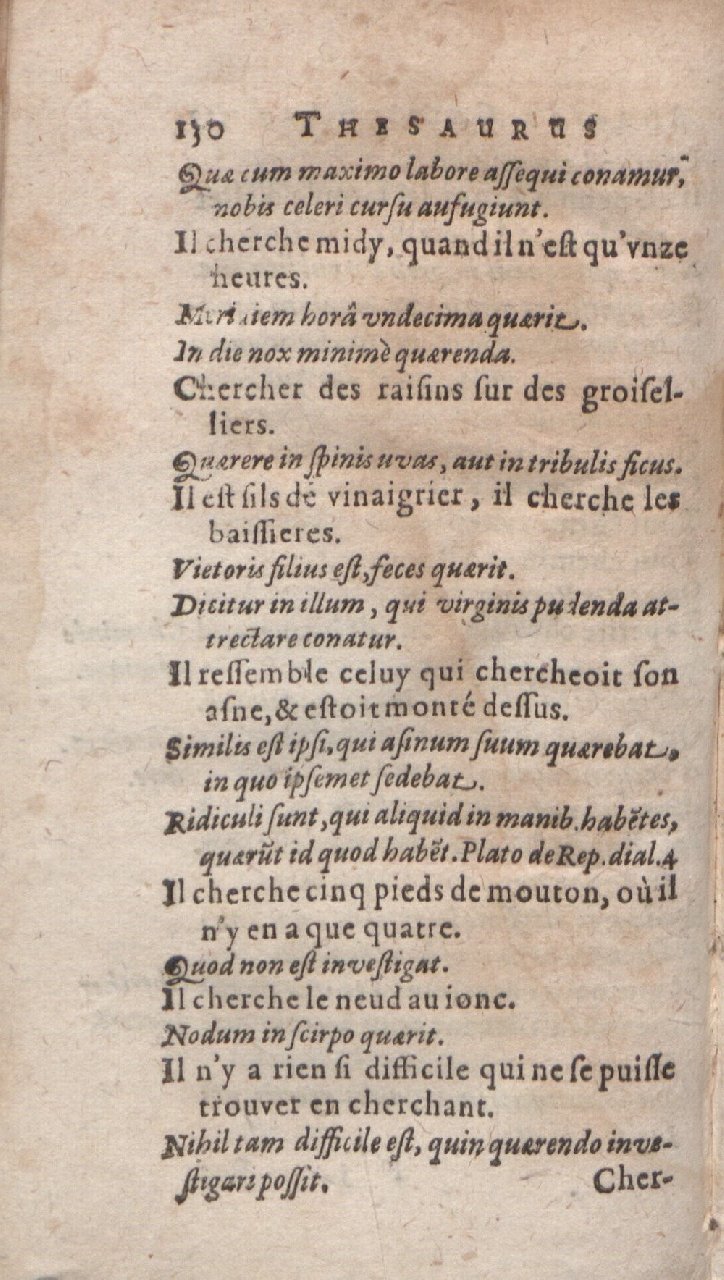 130 THESAURUS
Quæ cum maximo labore aſſequi conamur,
nobis celeri curſu aufugiunt.
Il cherche midy, quand il n'eſt qu'vnze
heures.
Meridiem horâ vndecima quærit.
In die nox minimè quærenda.
Chercher des raiſins ſur des groiſel-
liers.
Quærere in ſpinis uvas, aut in tribulis ficus.
Il eſt fils de vinaigrier, il cherche les
baiſſieres.
Vietoris filius eſt, feces quærit.
Dicitur in illum, qui virginis pudenda at-
trectare conatur.
Il reſſemble celuy qui chercheoit ſon
aſne, & eſtoit monté deſſus.
Similis eſt ipſi, qui aſinum ſuum quærebat,
in quo ipſemet ſedebat.
Ridiculi ſunt, qui aliquid in manib. habẽtes,
quærũt id quod habẽt. Plato de Rep. dial. 4
Il cherche cinq pieds de mouton, où il
n'y en a que quatre.
Quod non eſt inveſtigat.
Il cherche le neud au ionc.
Nodum in ſcirpo quærit.
Il n'y a rien ſi difficile qui ne ſe puiſſe
trouver en cherchant.
Nihil tam difficile eſt, quin quærendo inve-
ſtigari poſſit.
Cher-